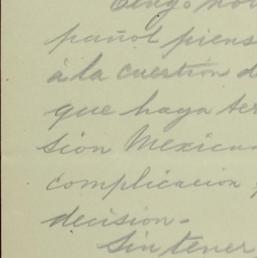 Tengo not
pañol piens
á la cuestion d
que haya ter
sion Mexican
complicacion
decision.
Sin tener